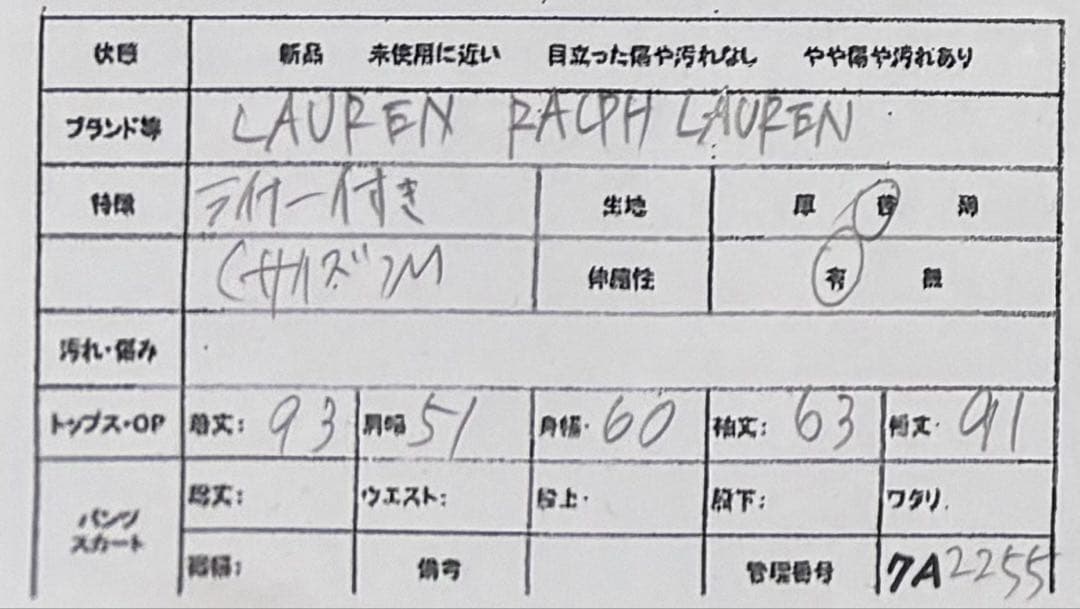 状態 新品 未使用に近い 目立った傷や汚れなし やや傷や汚れあり
ブランド等 LAUREN RALPH LAUREN
特徴 ライナー付き 生地 厚 普 薄
サイズM 伸縮性 有 無
汚れ・傷み
トップス・OP 着丈: 93 肩幅 51 身幅・ 60 袖丈: 63 裄丈・ 91
パンツ スカート 総丈: ウエスト: 股上・ 股下: ワタリ
裾幅: 備考 管理番号 7A2255